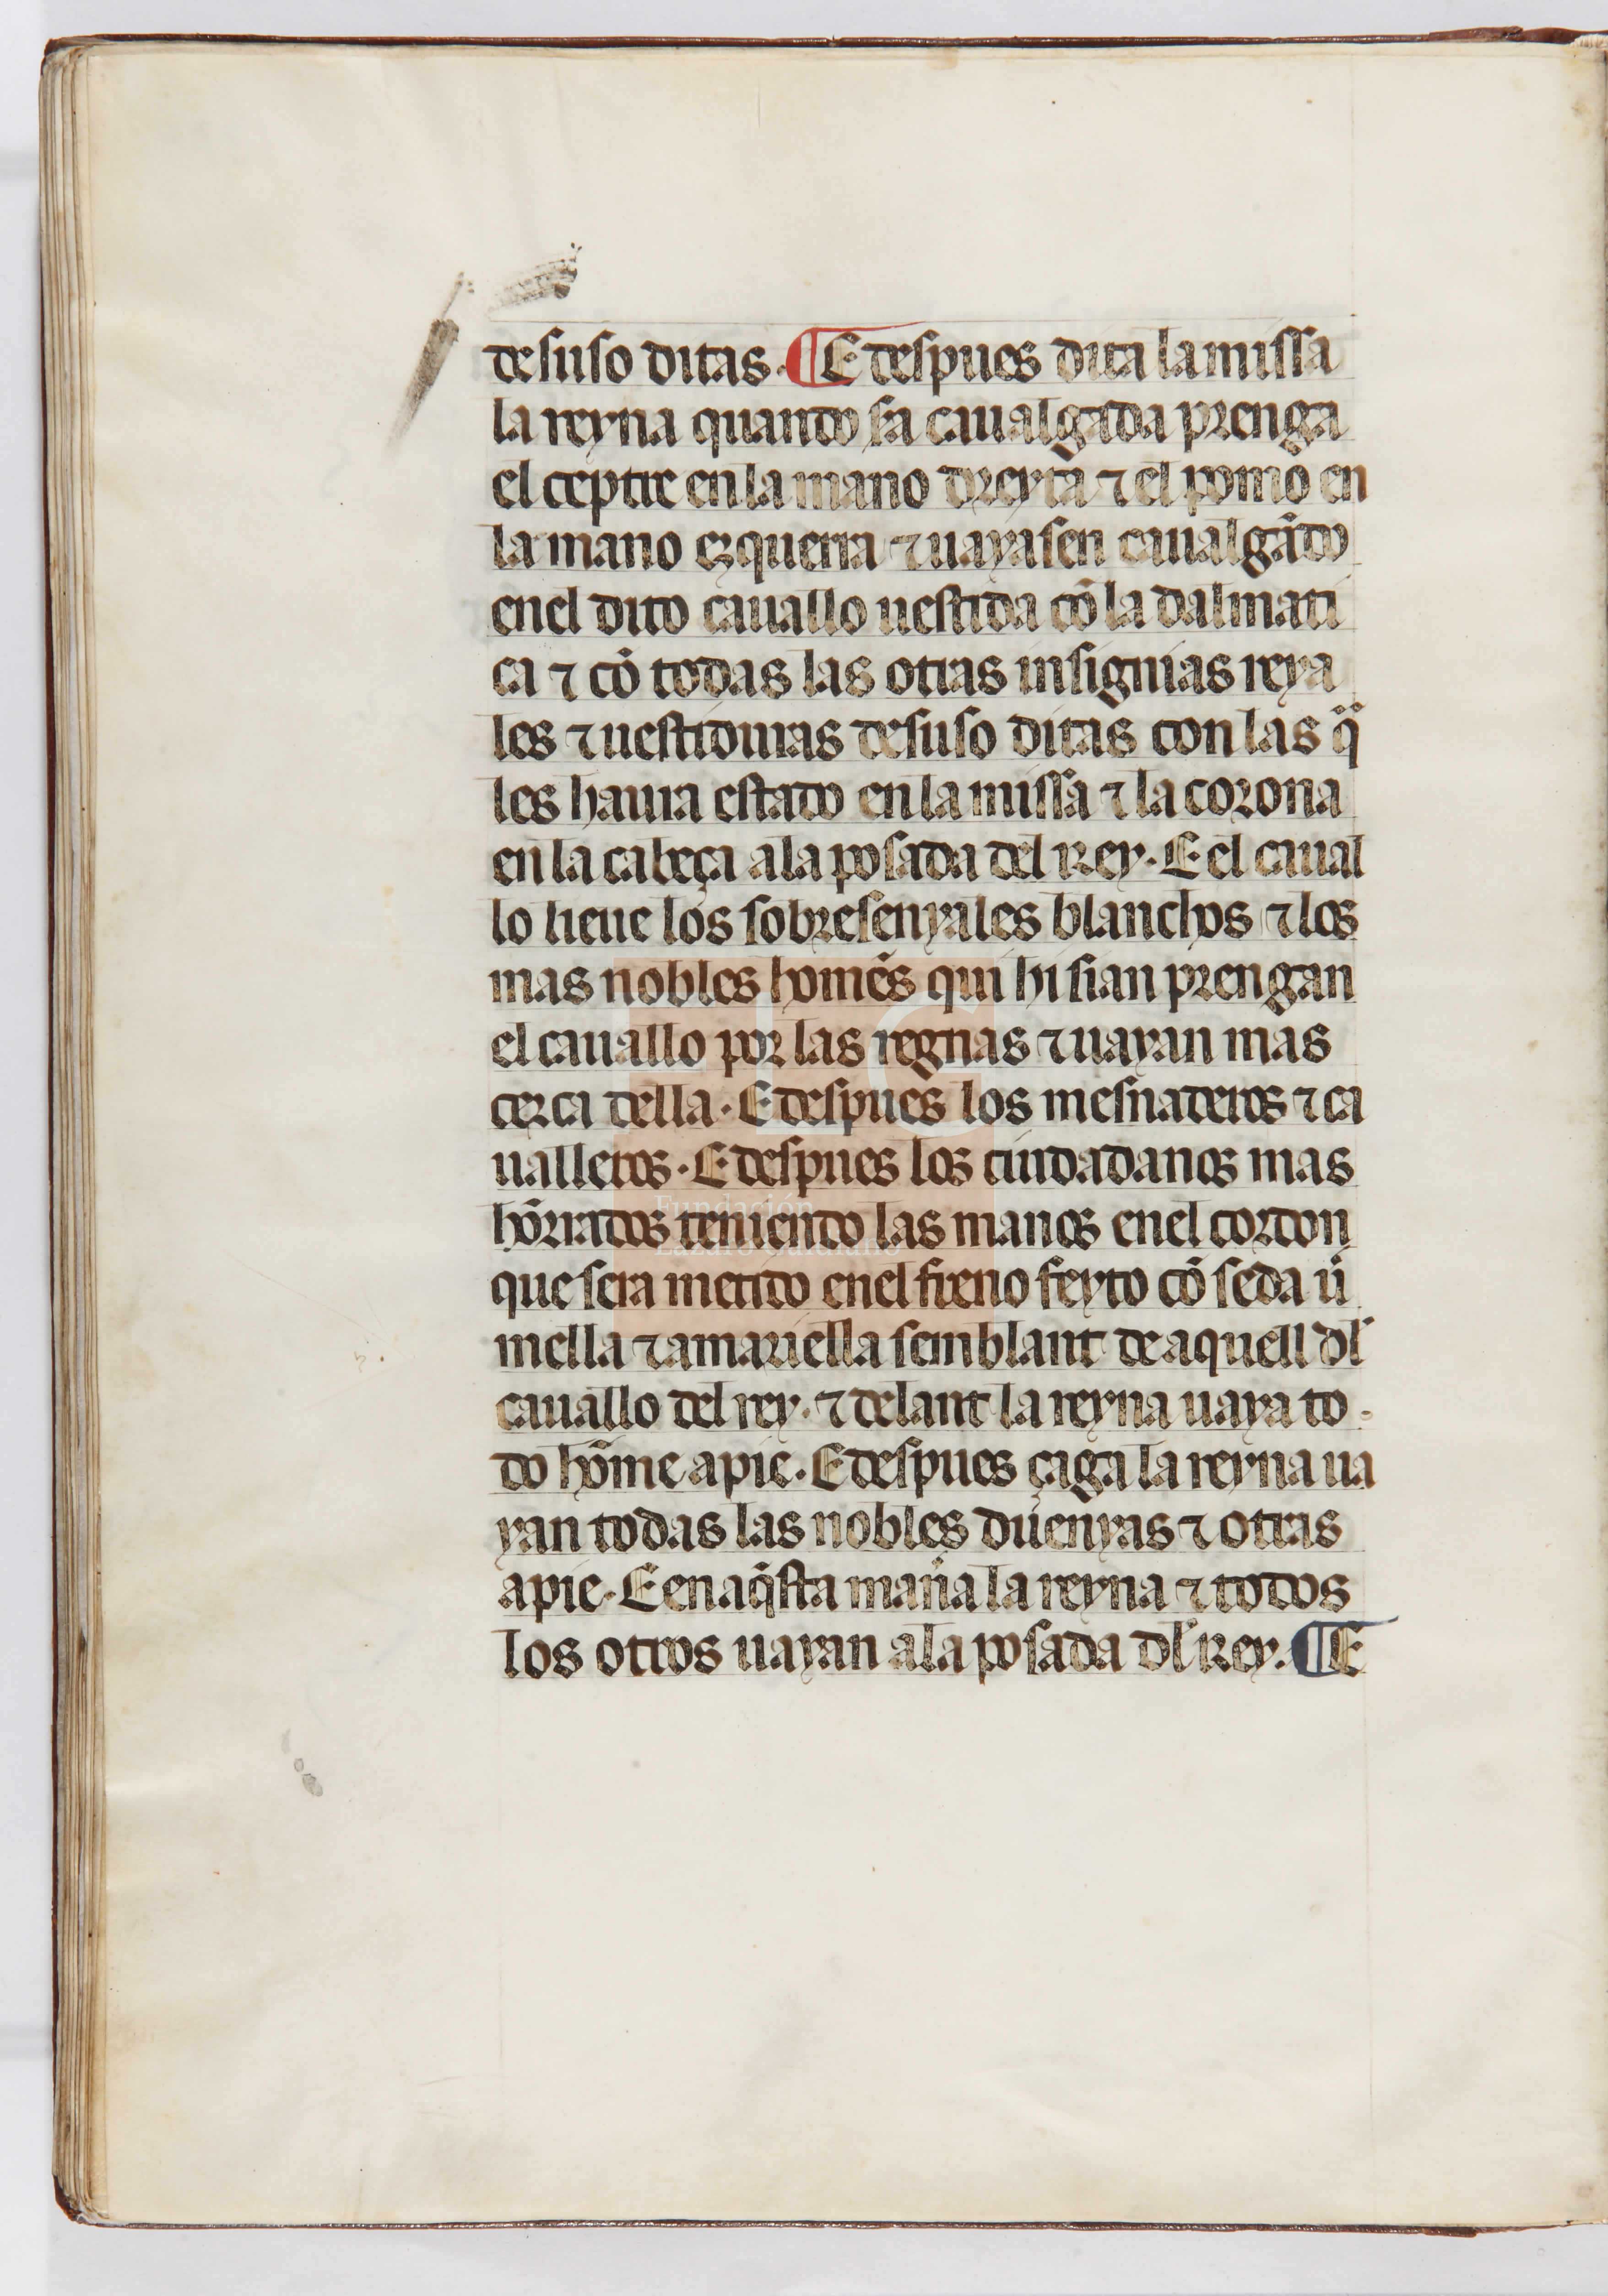 desuso ditas. ¶ E despues dita la missa
la reyna quando sa caualgada prenga
el ceptre en la mano dreyta ⁊ el pomo en
la mano ezquerra ⁊ uaya sen caualgādo
en el dito cauallo uestida cō la dalmati
ca ⁊ cō todas las otras insignias reya
les ⁊ uestiduras desuso ditas con las q̈
les haura estado en la missa ⁊ la corona
en la cabeça a la posada del rey. E el caual
lo lieue los sobresenyales blanchos ⁊ los
mas nobles homēs qui hi sian prengan
el cauallo por las regnas ⁊ uayan mas
cerca della. E despues los mesnaderos ⁊ ca
ualleros. E despues los ciudadanos mas
hōrrados teniendo las manos en el cordon
que sera metido en el freno feyto cō seda ū
mella ⁊ amariella semblant de aquell dl'
cauallo del rey. ⁊ delant la reyna uaya to
do hōme a pie. E despues çaga la reyna ua
yan todas las nobles duenyas ⁊ otras
a pie. E en aq̄sta man̄a la reyna ⁊ todos
los otros uayan a la posada dl' Rey. ¶ E
Fundación
Lázaro Galdiano